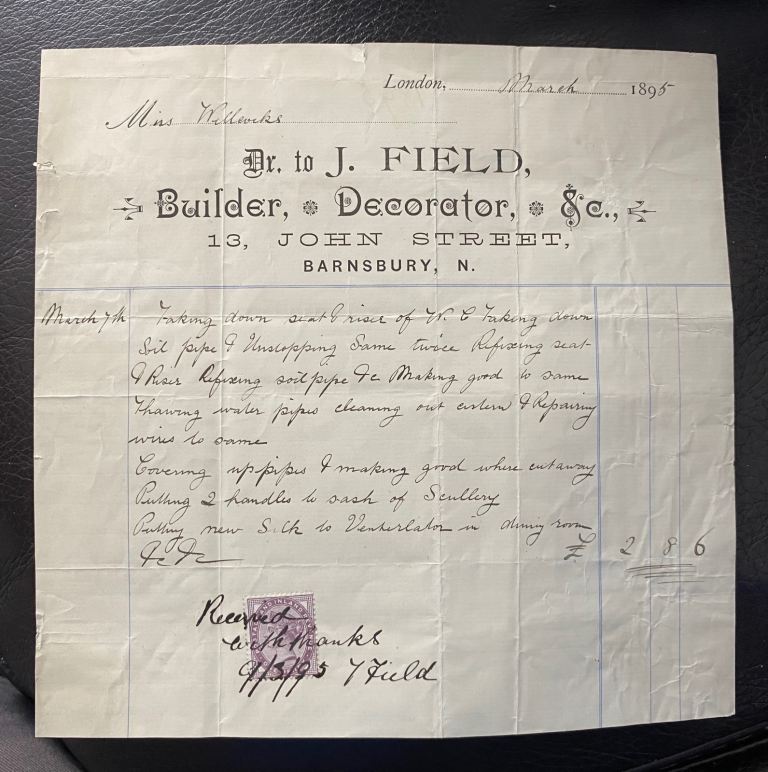 London, March 1895
Miss Willcocks
Dr. to J. FIELD,
Builder, Decorator, &c.,
13, JOHN STREET,
BARNSBURY, N.
March 7th Taking down seat & riser of W.C Taking down
Soil pipe & Unstopping Same twice Refixing seat
& Riser Refixing soil pipe &c Making good to same
Thawing water pipes cleaning out cistern & Repairing
wires to same
Covering up pipes & making good where cut away
Putting 2 handles to sash of Scullery
Putting new Silk to Venterlator in dining room
&c &c £ 2 8 6
Received
with thanks
9/3/95 J Field